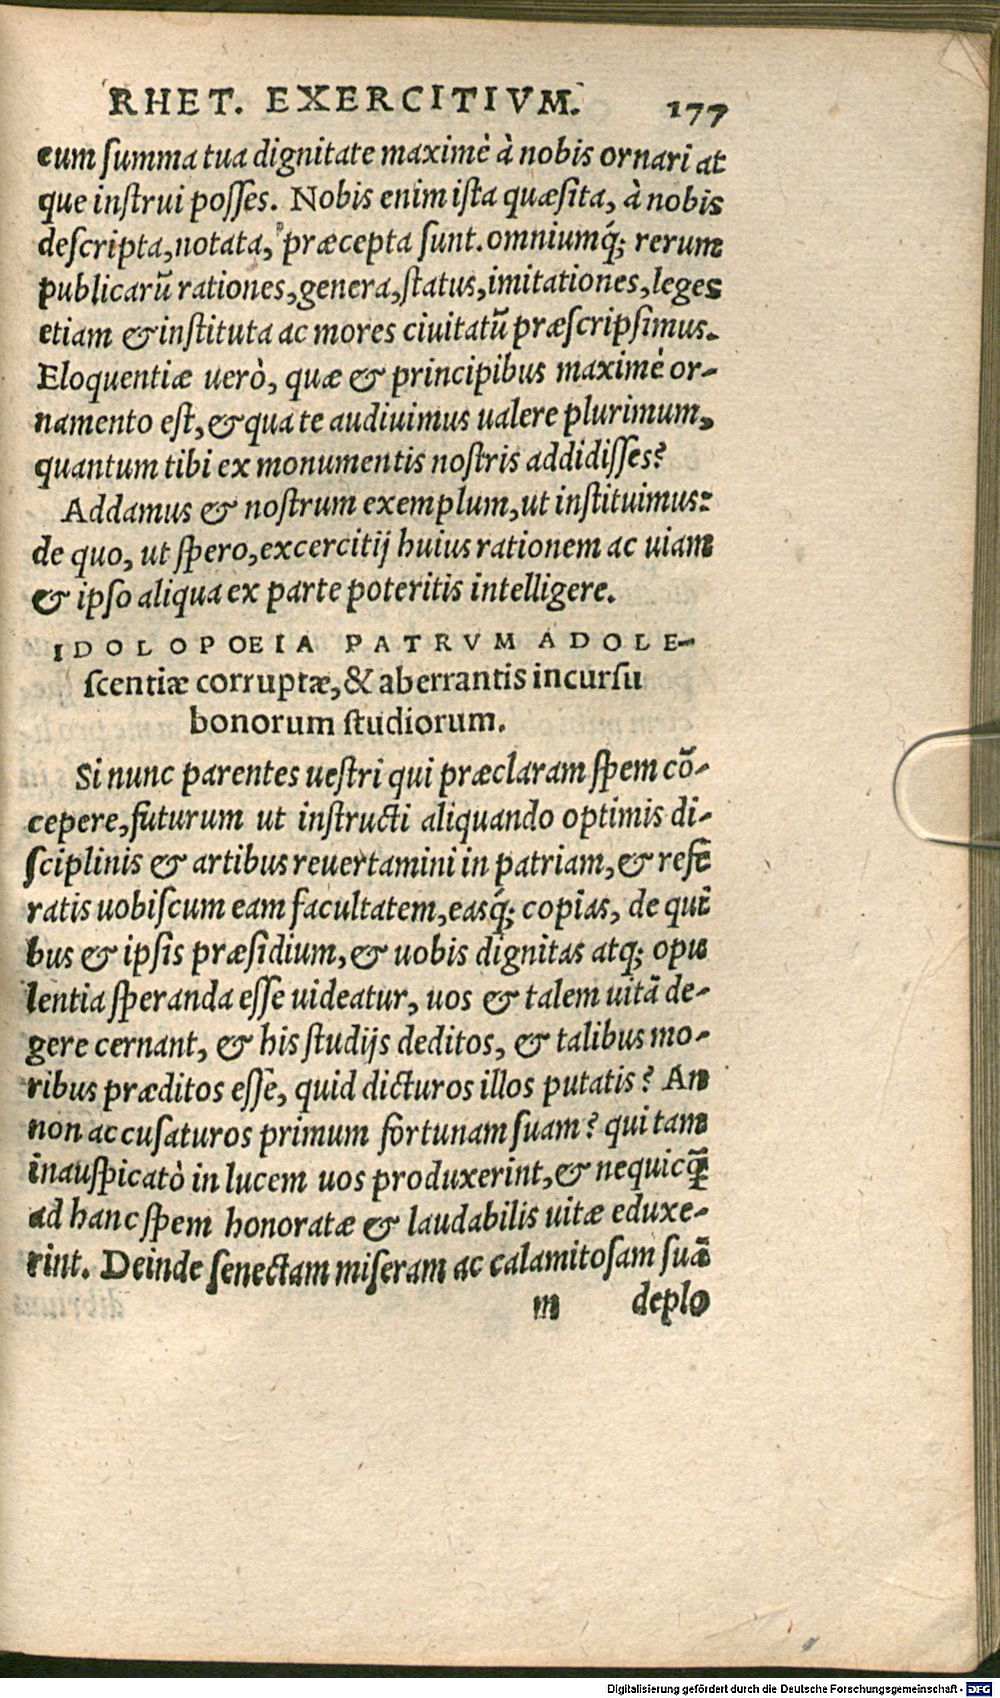 RHET. EXERCITIVM. 177
cum summa tua dignitate maximè à nobis ornari at
que instrui posses. Nobis enim ista quæsita, à nobis
descripta, notata, præcepta sunt. omniumq́; rerum
publicarũ rationes, genera, status, imitationes, leges
etiam & instituta ac mores ciuitatũ præscripsimus.
Eloquentiæ uerò, quæ & principibus maximè or-
namento est, & qua te audiuimus ualere plurimum,
quantum tibi ex monumentis nostris addidisses?
Addamus & nostrum exemplum, ut instituimus:
de quo, ut spero, excercitij huius rationem ac uiam
& ipso aliqua ex parte poteritis intelligere.
IDOLOPOEIA PATRVM ADOLE-
scentiæ corruptæ, & aberrantis incursu
bonorum studiorum.
Si nunc parentes uestri qui præclaram spem cõ-
cepere, futurum ut instructi aliquando optimis di-
sciplinis & artibus reuertamini in patriam, & refe
ratis uobiscum eam facultatem, easq́; copias, de qui
bus & ipsis præsidium, & uobis dignitas atq; opu
lentia speranda esse uideatur, uos & talem uitã de-
gere cernant, & his studijs deditos, & talibus mo-
ribus præditos esse, quid dicturos illos putatis? An
non accusaturos primum fortunam suam? qui tam
inauspicatò in lucem uos produxerint, & nequicq̃
ad hanc spem honoratæ & laudabilis uitæ eduxe-
rint. Deinde senectam miseram ac calamitosam suã
m deplo
Digitalisierung gefördert durch die Deutsche Forschungsgemeinschaft - DFG